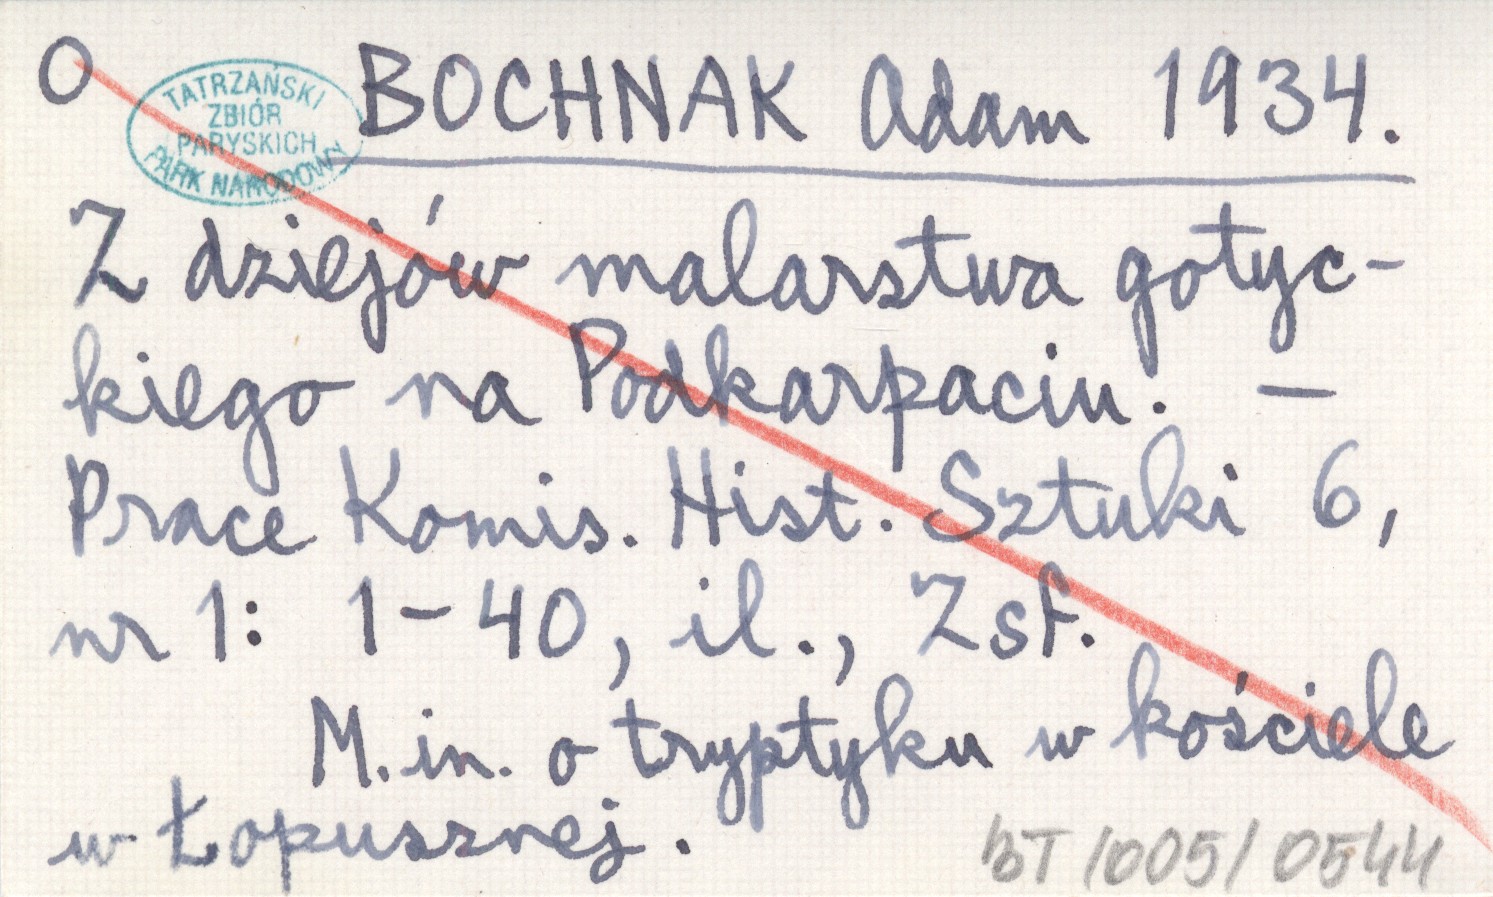 O
TATRZAŃSKI
ZBIÓR
PARYSKICH
PARK NARODOWY
BOCHNAK Adam 1934.
Z dziejów malarstwa gotyc-
kiego na Podkarpaciu. —
Prace Komis. Hist. Sztuki 6,
nr 1: 1-40, il., Zsf.
M.in. o tryptyku w kościele
w Łopusznej.
BT/005/0544